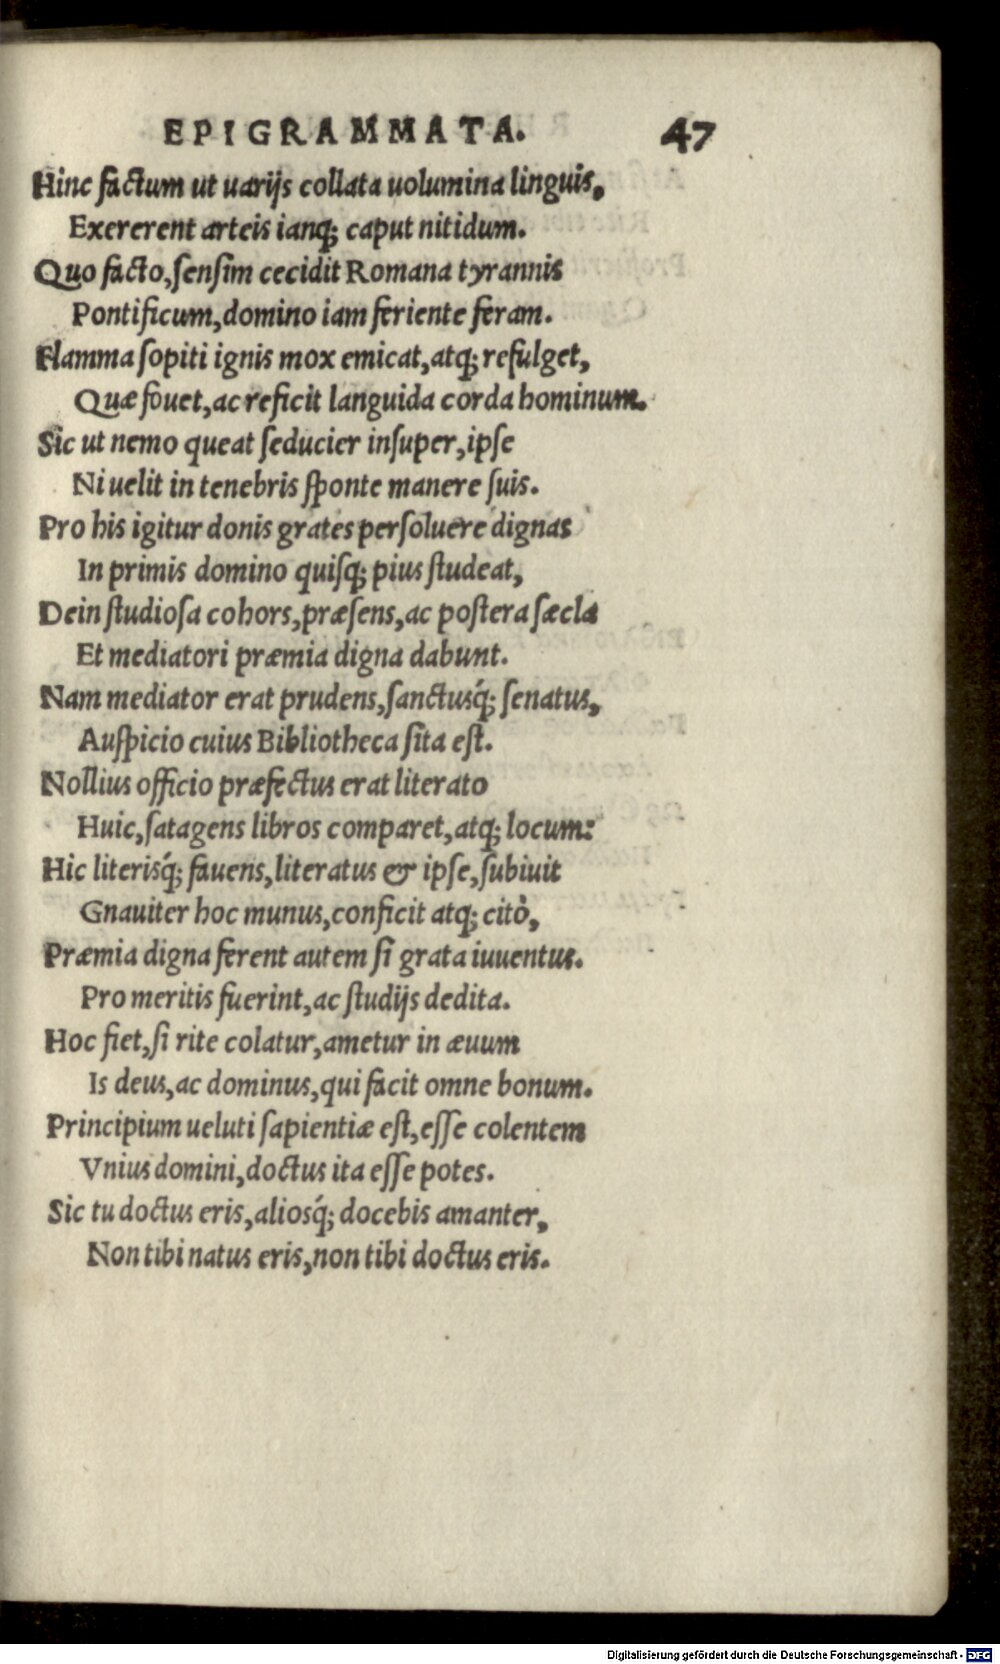 EPIGRAMMATA. 47
Hinc factum ut uarijs collata uolumina linguis,
Exererent arteis ianq; caput nitidum.
Quo facto, sensim cecidit Romana tyrannis
Pontificum, domino iam feriente feram.
Flamma sopiti ignis mox emicat, atq; refulget,
Quæ fouet, ac reficit languida corda hominum.
Sic ut nemo queat seducier insuper, ipse
Ni uelit in tenebris sponte manere suis.
Pro his igitur donis grates persoluere dignas
In primis domino quisq; pius studeat,
Dein studiosa cohors, præsens, ac postera sæcla
Et mediatori præmia digna dabunt.
Nam mediator erat prudens, sanctusq́; senatus,
Auspicio cuius Bibliotheca sita est.
Nollius officio præfectus erat literato
Huic, satagens libros comparet, atq; locum:
Hic literisq́; fauens, literatus & ipse, subiuit
Gnauiter hoc munus, conficit atq; citò,
Præmia digna ferent autem si grata iuuentus.
Pro meritis fuerint, ac studijs dedita.
Hoc fiet, si rite colatur, ametur in æuum
Is deus, ac dominus, qui facit omne bonum.
Principium ueluti sapientiæ est, esse colentem
Vnius domini, doctus ita esse potes.
Sic tu doctus eris, aliosq́; docebis amanter,
Non tibi natus eris, non tibi doctus eris.
Digitalisierung gefördert durch die Deutsche Forschungsgemeinschaft - DFG